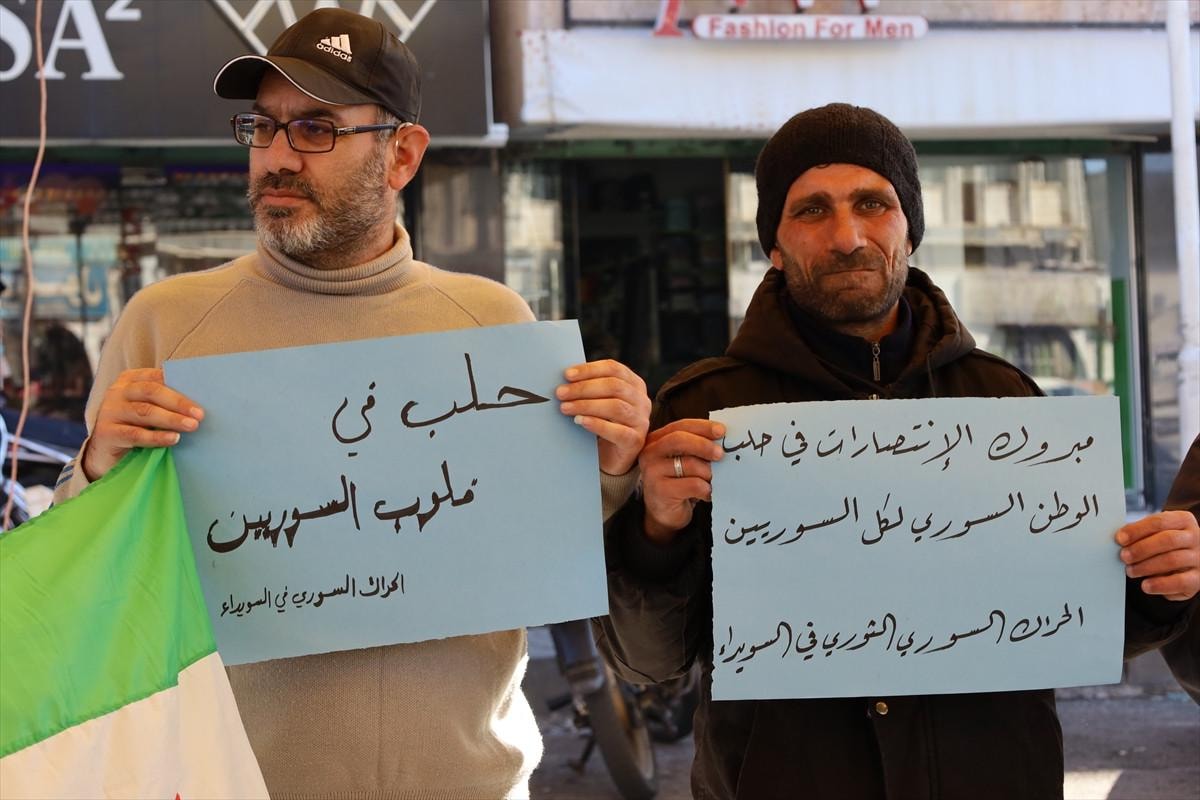 SA²
Fashion For Men
adidas
حلب في
قلوب السوريين
الحراك السوري في السويداء
مبروك الإنتصارات في حلب
الوطن السوري لكل السوريين
الحراك السوري الثوري في السويداء